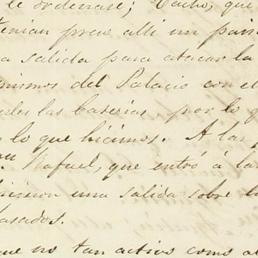 le ordenase; dicho, que
tenian preso alli un pais
a salida para atacar la
mismos del Palacio con el
las baterias por lo q
lo que hicimos. A las
Rafael, que entró a la
hicieron una salida sobre l
asados.
que no tan activo como a